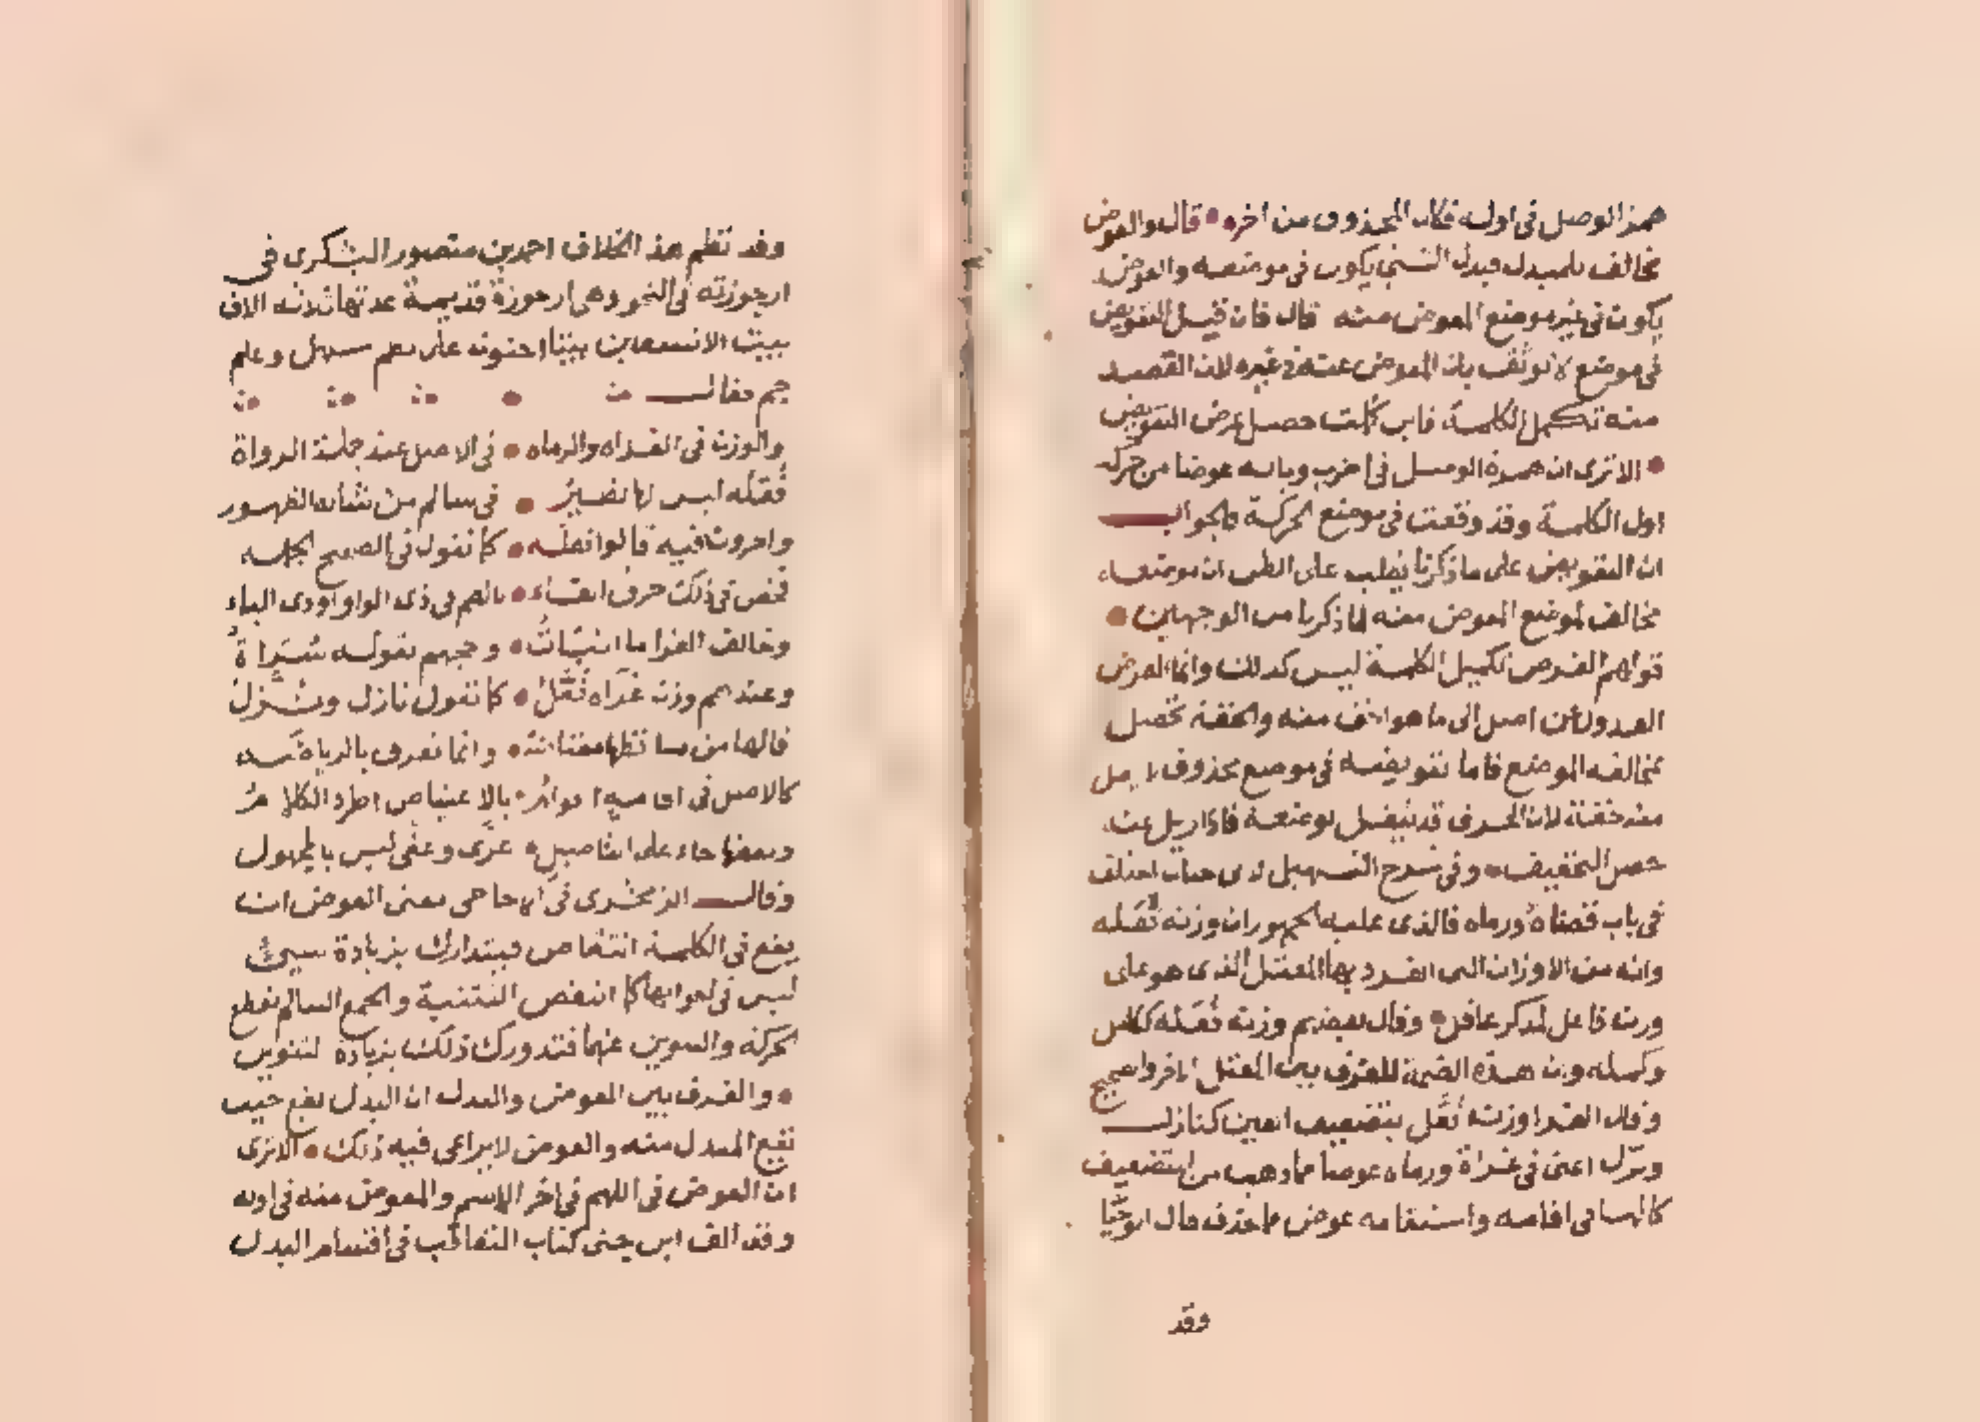 همز الوصل في اوله فكان المحذوف من اخره قال والعوض
مخالف للمبدل فبدل الشي يكون في موضعه والعوض
يكون في غير موضع المعوض منه قال فان قيل التعويض
في موضع لا يوثق بان المعوض عنه في غيره لان القصد
منه تكميل الكلمة فاين كملت حصل غرض التعويض
الا ترى ان همزة الوصل في اضرب وبابه عوضا من حركة
اول الكلمة وقد وقعت في موضع الحركة فالجواب
ان التعويض على ما ذكرنا يغلب على الظن ان موضعه
مخالف لموضع المعوض منه لما ذكرنا من الوجهين
قولهم الغرض تكميل الكلمة ليس كذلك وانما الغرض
العدول عن اصل الى ما هو اخف منه والخفة تحصل
بمخالفة الموضع فاما تعويضه في موضع محذوف لا يحصل
منه خفة لان الحرف قد يثقل بموضعه فاذا ازيل عنه
حصل التخفيف وفي شرح التسهيل لابي حيان اختلف
في باب قضاة ورماة فالذي عليه الجمهور ان وزنه فُعَلَه
وانه من الاوزان التي انفرد بها المعتل الذي هو على
وزن فاعل لمذكر عاقل وقال بعضهم وزنه فَعَله ككامل
وكمله وان هذه الضمة للفرق بين المعتل الاخر والصحيح
وقال الفرا وزنه فُعَّل بتضعيف العين كنازل
ونزل اعني في غزاة ورماه عوضا مما ذهب من التضعيف
كالها في اقامه واستقامه عوض مما حذف قال ابو حيا
وقد
وقد نظم هذ الخلاف احمد بن منصور اليشكري في
ارجوزته في النحو وهي ارجوزة قديمة عدتها ثلاثه الاف
بيت الا تسعين بيتا احتوت على نظم سهل وعلم
جم فقال
والوزن في الغزاه والرماه في الاصل عند جملة الرواة
فُعَلَه ليس لها نظير في سالم من شانه الظهور
واخرون فيه قالوا فعله كما تقول في الصحيح الحمله
فخص في ذلك حرف الفاء بالضم في ذي الواو او ذي الياء
وخالف الفرا ما انبات وحجهم بقوله سراة
وعندهم وزن غزاه فُعَّل كما تقول نازل ونُزَّل
فالها من ساقطها معتاضه وانما تعرف بالرياضه
كالاصل في اقامة اقوام بالاعتياض اطرد الكلام
وبعضها جاء على التاصيل غزى وعفى ليس بالمجهول
وقال الزمخشري في الاحاجي معنى العوض ان
يقع في الكلمة انتقاص فيتدارك بزيادة شيء
ليس في اخواتها كما انتقص التثنية والجمع السالم بقطع
الحركه والتنوين عنهما فتدورك ذلك بزيادة لتنوين
والفرق بين العوض والبدل ان البدل يقع حيث
يقع المبدل منه والعوض لا يراعى فيه ذلك الا ترى
ان العوض في اللهم في اخر الاسم والمعوض منه في اوله
وقد الف ابن جني كتاب التعاقب في اقسام البدل